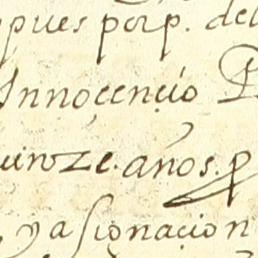 pues porp. del
Innocencio
uinze. años. p
, y asignacion